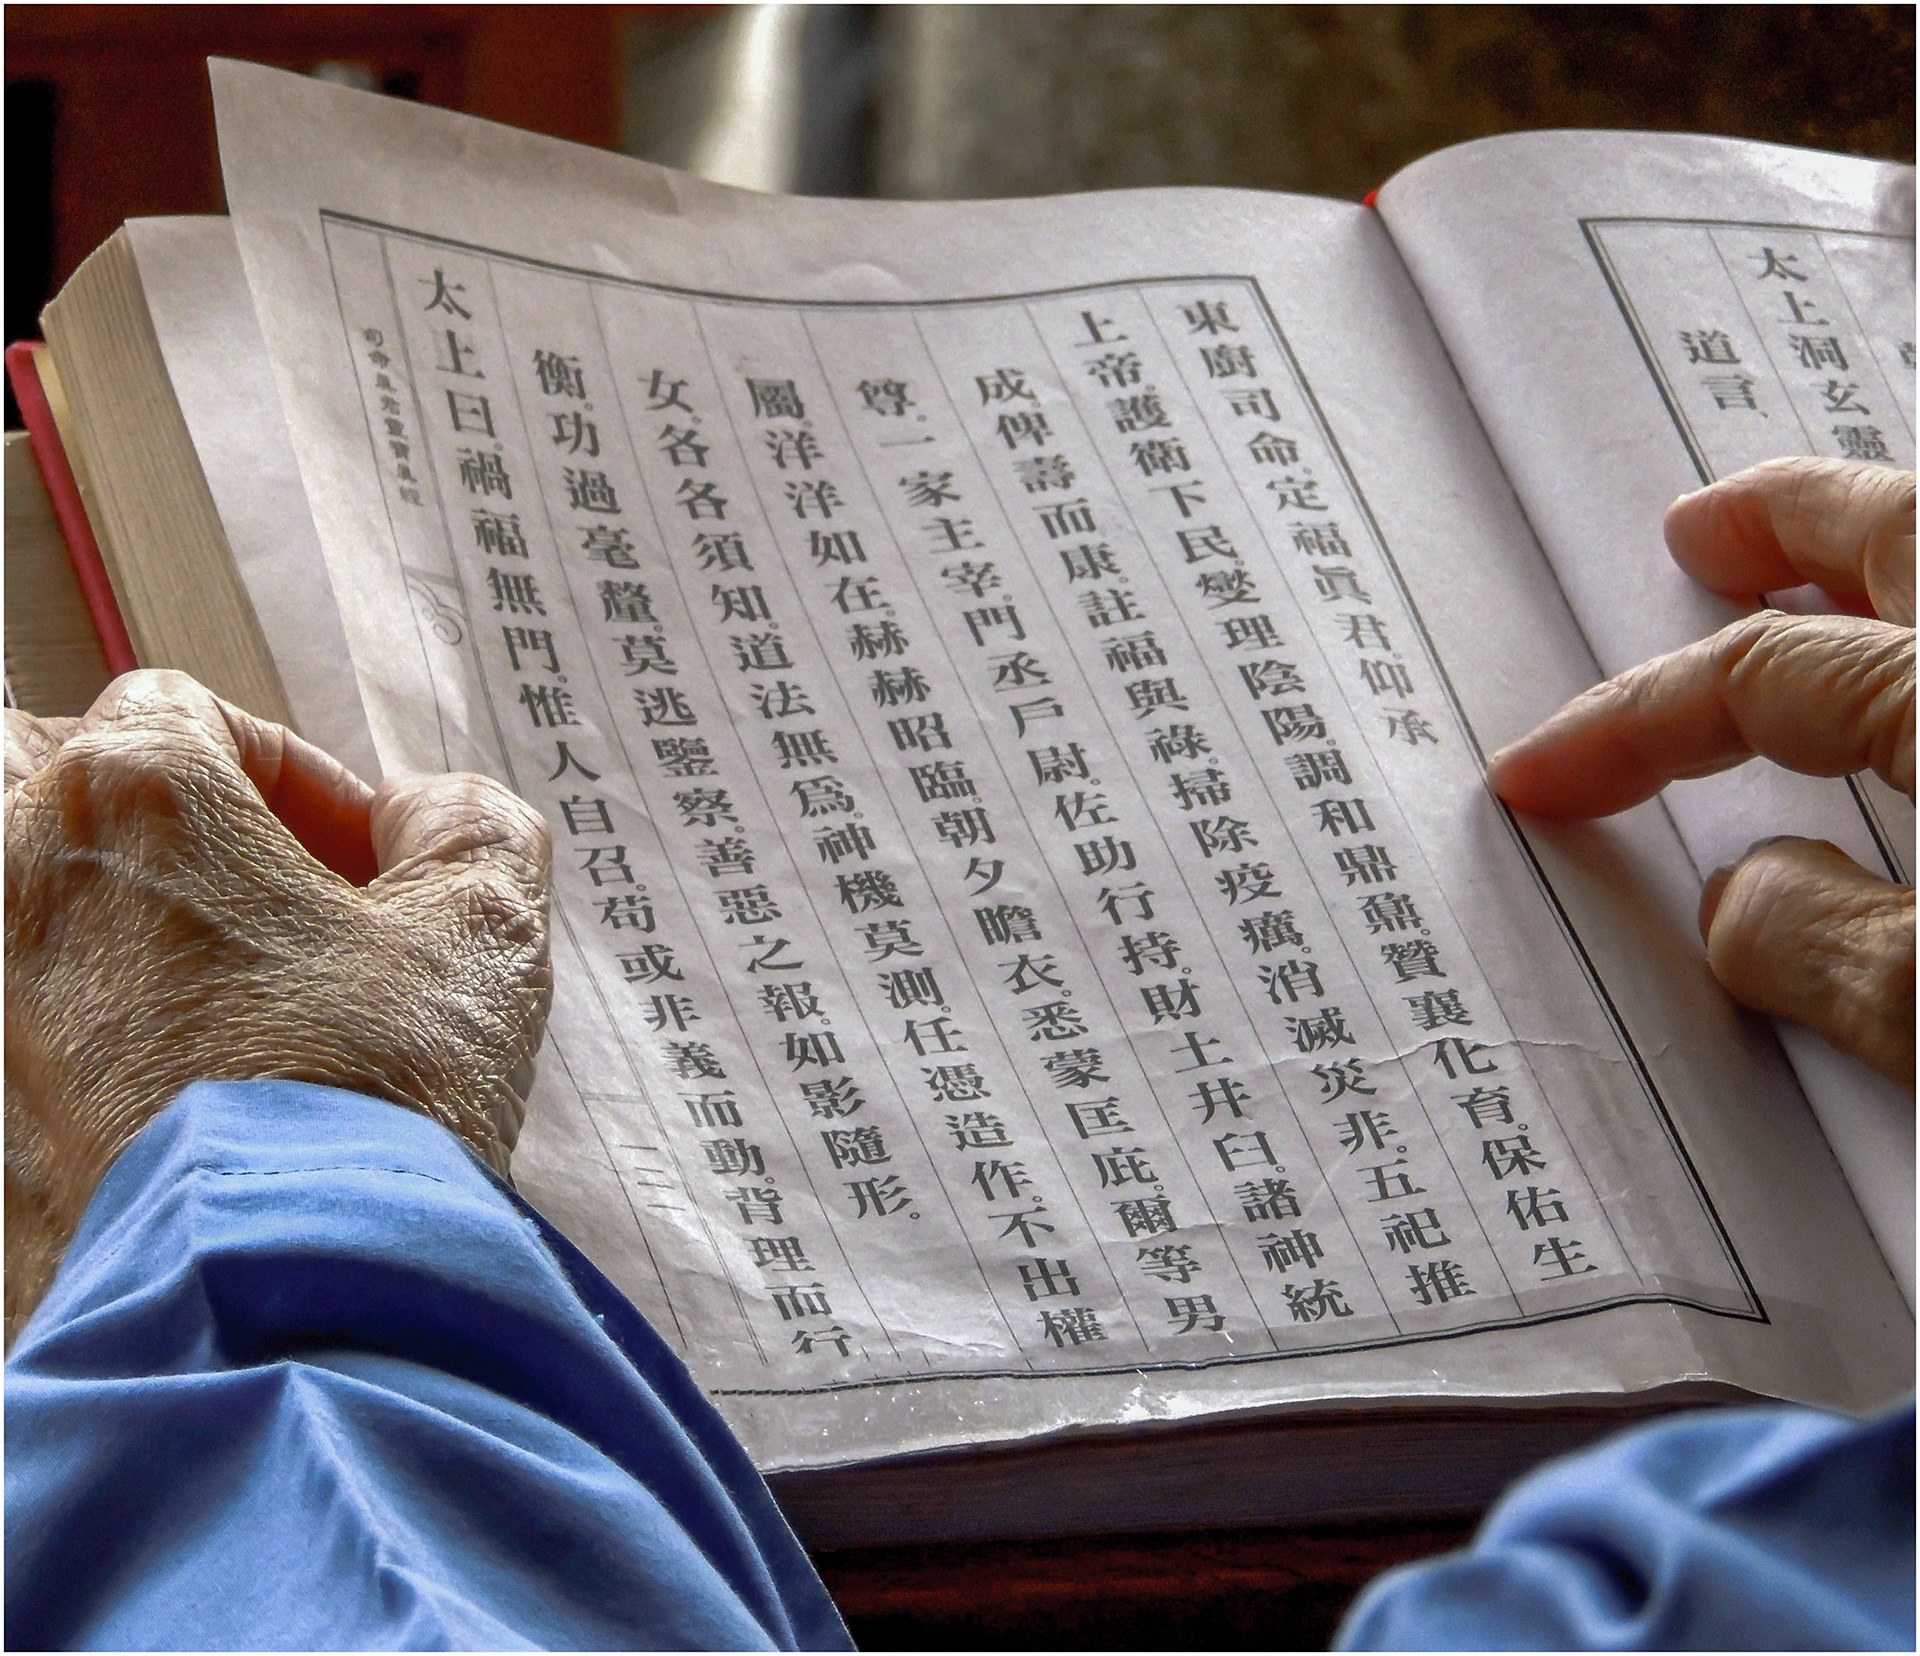 太上洞玄靈
道言、
東廚司命。定福眞君。仰承
上帝。護衛下民。燮理陰陽。調和鼎鼐。贊襄化育。保佑生
成。俾壽而康。註福與祿。掃除疫癘。消滅災非。五祀推
尊。一家主宰。門丞戶尉。佐助行持。財土井臼。諸神統
屬。洋洋如在。赫赫昭臨。朝夕瞻衣。悉蒙匡庇。爾等男
女。各各須知。道法無爲。神機莫測。任憑造作。不出權
衡。功過毫釐。莫逃鑒察。善惡之報。如影隨形。
太上曰。禍福無門。惟人自召。苟或非義而動。背理而行
司命眞君靈寶眞經